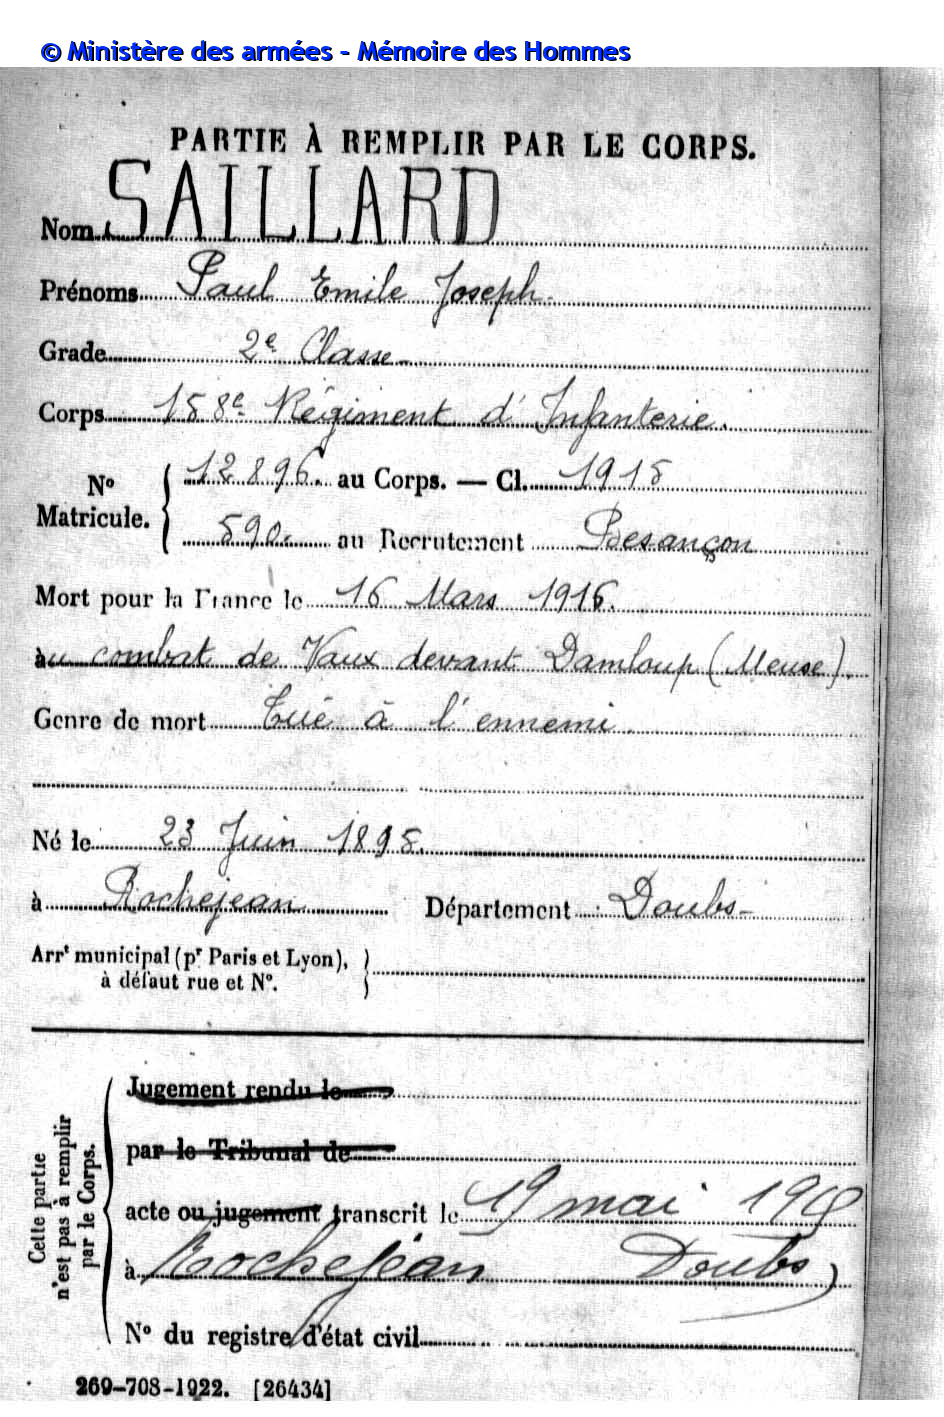 © Ministère des armées - Mémoire des Hommes
PARTIE À REMPLIR PAR LE CORPS.
Nom SAILLARD
Prénoms Paul Emile Joseph.
Grade 2e Classe
Corps 158e Régiment d'Infanterie.
No Matricule. { 12896. au Corps. — Cl. 1915
590. au Recrutement Besançon
Mort pour la France le 16 Mars 1916.
au combat de Vaux devant Damloup (Meuse).
Genre de mort Tué à l'ennemi.
Né le 23 Juin 1895.
à Rochejean Département Doubs
Arrt municipal (pr Paris et Lyon),
à défaut rue et No.
Cette partie
n'est pas à remplir
par le Corps.
Jugement rendu le
par le Tribunal de
acte ou jugement transcrit le 19 mai
à Rochejean Doubs)
No du registre d'état civil
269-708-1922. [26434]